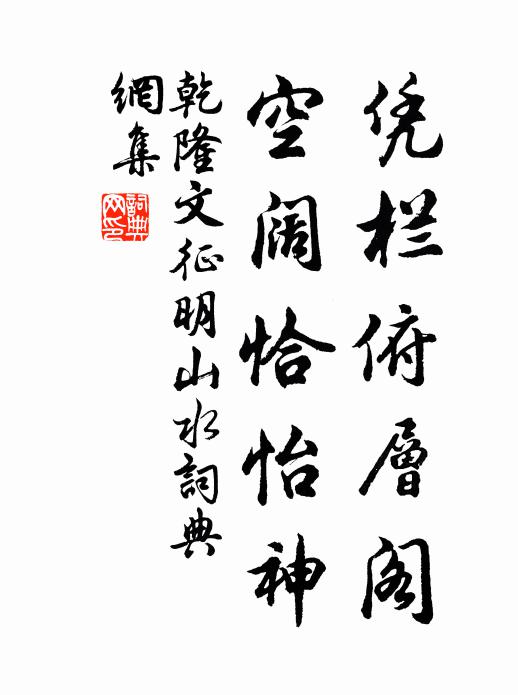 凭栏俯層阁
空阔恰怡神
乾隆文征明山水詞典
網集
詞典
网印